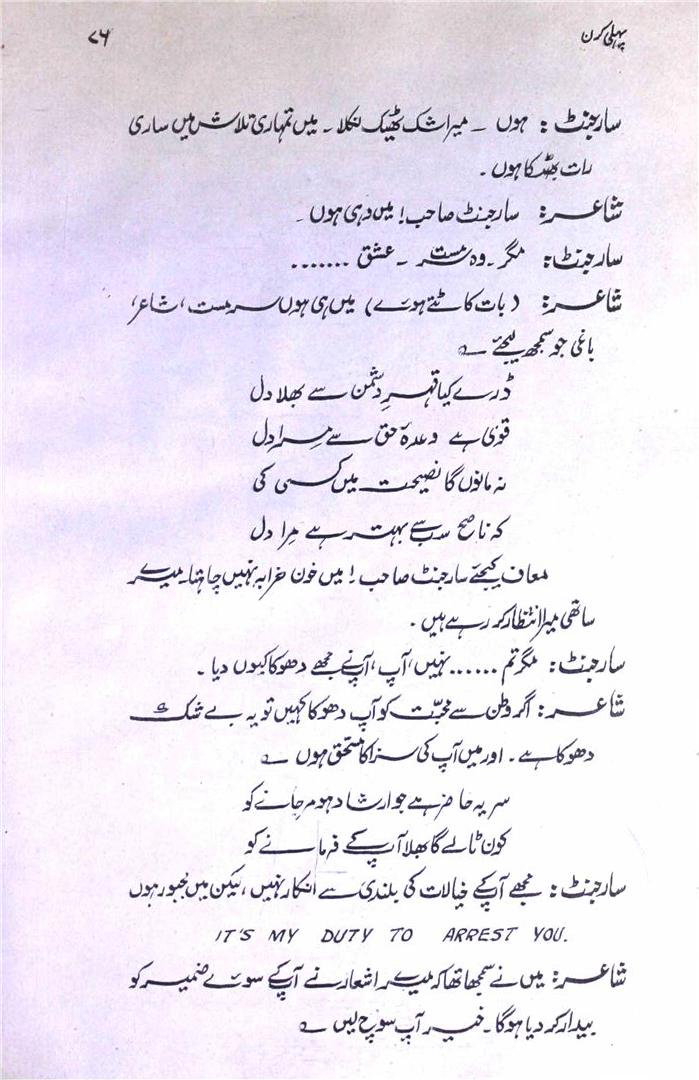 پہلی کرن
۷۶
سارجنٹ: ہوں ۔ میرا شک ٹھیک نکلا ۔ میں تمہاری تلاش میں ساری
رات بھٹکا ہوں ۔
شاعر: سارجنٹ صاحب! میں وہی ہوں ۔
سارجنٹ: مگر ۔ وہ مست ۔ عشق .......
شاعر: (بات کاٹتے ہوئے) میں ہی ہوں سرمست، شاعر،
باغی جو سمجھ لیجئے ؎
ڈرے کیا قہرِ دشمن سے بھلا دل
قوی ہے وعدۂ حق سے مرا دل
نہ مانوں گا نصیحت میں کسی کی
کہ ناصح سب سے بہتر ہے مرا دل
معاف کیجئے سارجنٹ صاحب! میں خون خرابہ نہیں چاہتا۔ میرے
ساتھی میرا انتظار کر رہے ہیں ۔
سارجنٹ: مگر تم ...... نہیں، آپ، آپ نے مجھے دھوکا کیوں دیا ۔
شاعر: اگر وطن سے محبّت کو آپ دھوکا کہیں تو یہ بے شک
دھوکا ہے ۔ اور میں آپ کی سزا کا مستحق ہوں ؎
سر یہ حاضر ہے جو ارشاد ہو مر جانے کو
کون ٹالے گا بھلا آپ کے فرمانے کو
سارجنٹ: مجھے آپ کے خیالات کی بلندی سے انکار نہیں، لیکن میں مجبور ہوں
IT'S MY DUTY TO ARREST YOU.
شاعر: میں نے سمجھا تھا کہ میرے اشعار نے آپ کے سوئے ضمیر کو
بیدار کر دیا ہوگا ۔ خیر آپ سوچ لیں ؎